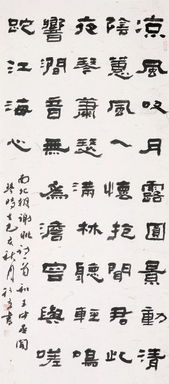 涼風吹月露圓景動清
陰蕙風入懷抱聞君此
夜琴蕭瑟滿林聽輕鳴
響澗音無為澹容與蹉
跎江海心
南北朝謝朓詩
秋月 書